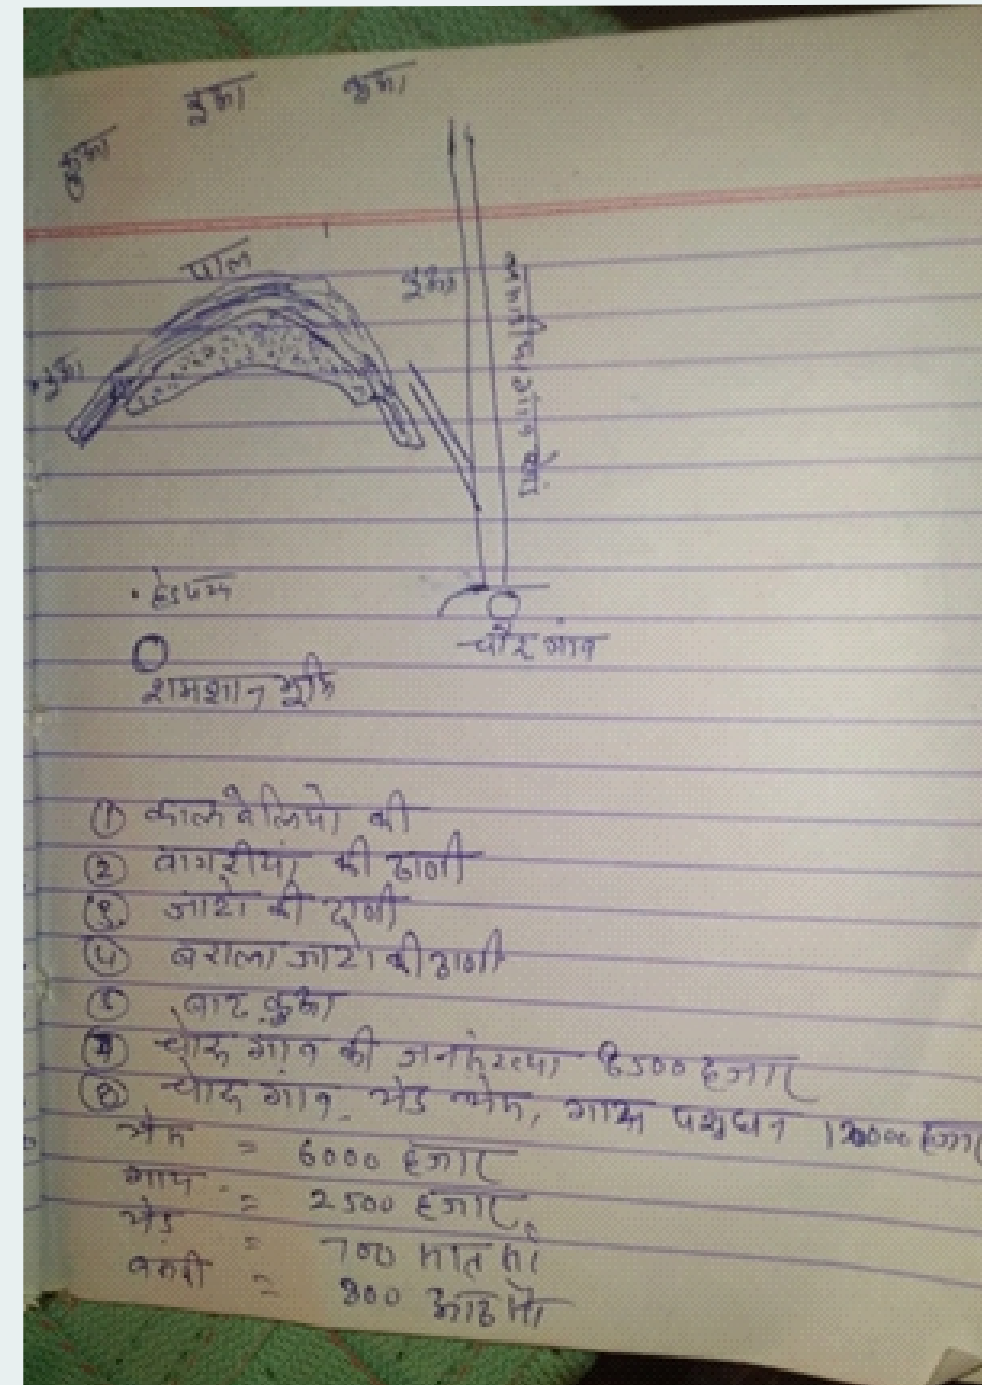 कुआ
कुआ
कुआ
पाल
कुआ
कुआ
हेडपम्प
चौरू गांव
शमशान भूमि
① कालबेलियो की
② बागरीयां की ढाणी
③ जाटो की ढाणी
④ बराला जाटो की ढाणी
⑤ कुआ
चौरू गांव की जनसंख्या 8500 हजार
⑧ चौरू गांव भेड भैस, गाय पशुधन हजार
भैस = 6000 हजार
गाय = 2500 हजार
भेड = 700 सात सो
बकरी = 800 आठ सो